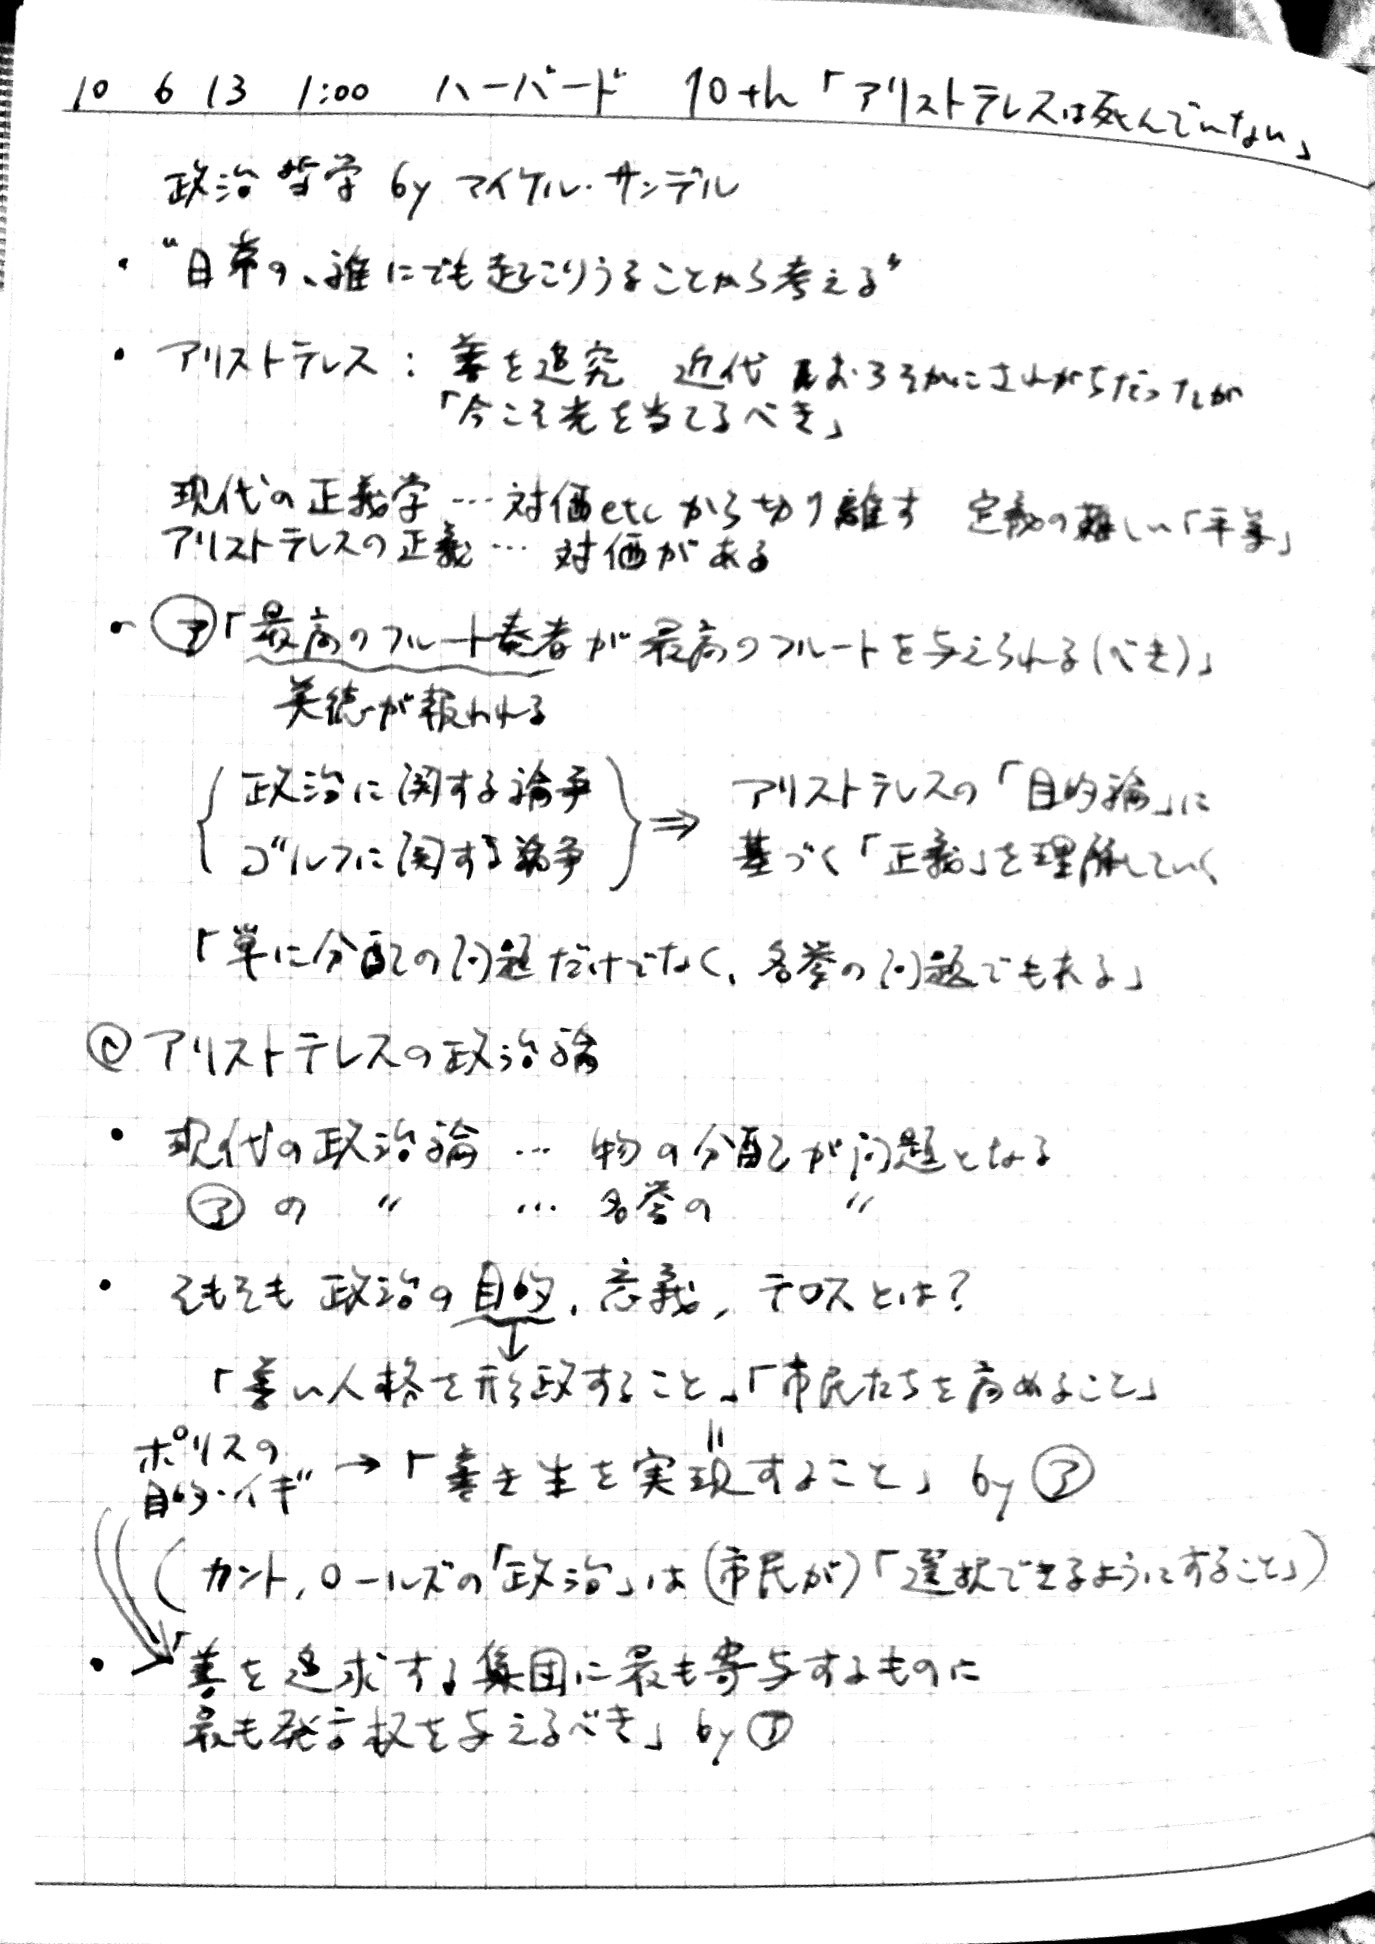 10 6 13 1:00 ハーバード 10th「アリストテレスは死んでいない」
政治哲学 by マイケル・サンデル
・“日常の、誰にでも起こりうることから考える”
・アリストテレス：善を追究 近代 おろそかにされがちだったが
「今こそ光を当てるべき」
現代の正義学…対価etcから切り離す 定義の難しい「平等」
アリストテレスの正義…対価がある
・㋐「最高のフルート奏者が最高のフルートを与えられる(べき)」
美徳が報われる
政治に関する論争
ゴルフに関する論争
⇒ アリストテレスの「目的論」に
基づく「正義」を理解していく
「単に分配の問題だけでなく、名誉の問題でもある」
アリストテレスの政治論
・現代の政治論…物の分配が問題となる
㋐の 〃 …名誉の 〃
・そもそも政治の目的、意義、テロスとは？
↓
「善い人格を形成すること」「市民たちを高めること」
=
ポリスの
目的・イギ → 「善き生を実現すること」 by ㋐
(カント、ロールズの「政治」は(市民が)「選択できるようにすること」)
・「善を追求する集団に最も寄与するものに
最も発言権を与えるべき」by ㋐